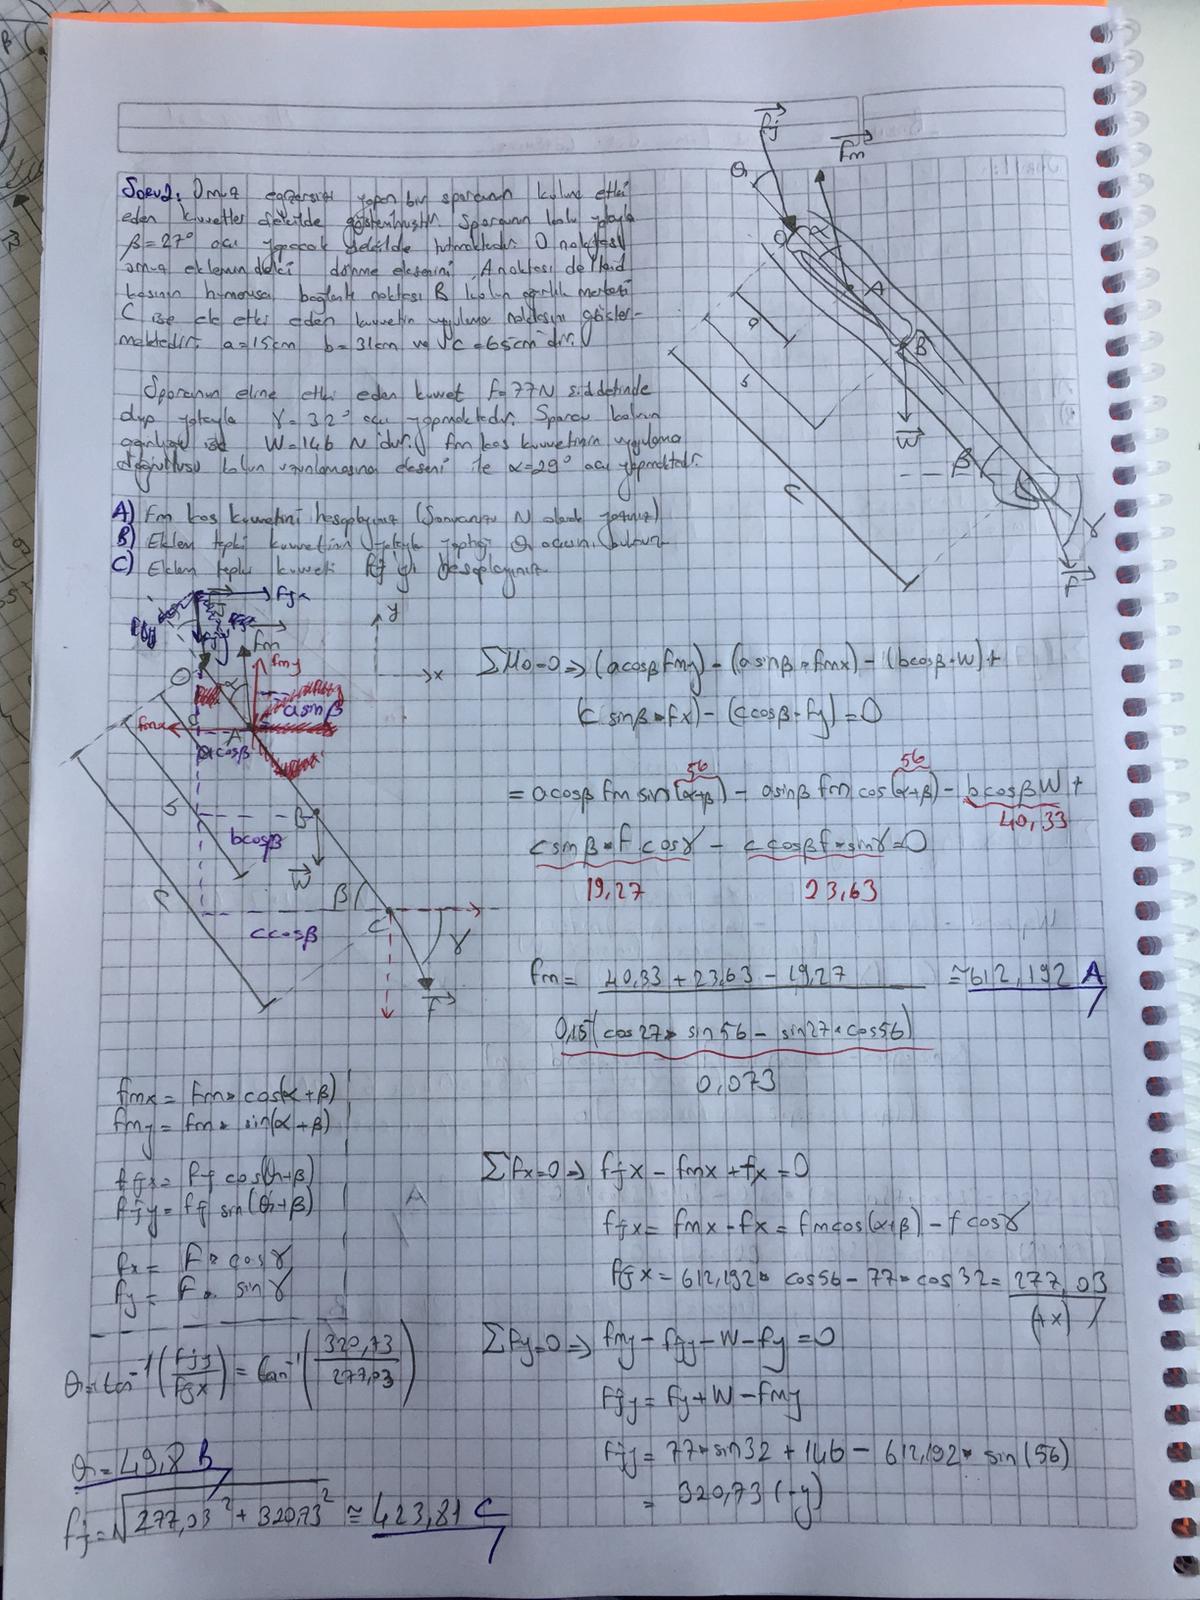 Soru2: Omuz egzersizi yapan bir sporcunun koluna etki
eden kuvvetler şekilde gösterilmiştir. Sporcunun kolu yatayla
β=27° açı yapacak şekilde tutmaktadır. O noktası
omuz eklemindeki dönme eksenini, A noktası deltoid
kasının humerusa bağlantı noktası B kolun ağırlık merkezi
C ise ele etki eden kuvvetin uygulama noktasını göster-
mektedir. a=15cm b=31cm ve c=65cm dir.
Sporcunun eline etki eden kuvvet F=77N şiddetinde
olup yatayla γ=32° açı yapmaktadır. Sporcu kolunun
ağırlığı ise W=146 N dur. Fm kas kuvvetinin uygulama
doğrultusu kolun uzunlamasına ekseni ile α=29° açı yapmaktadır.
A) Fm kas kuvvetini hesaplayınız (Sonucunuzu N olarak yazınız)
B) Eklem tepki kuvvetinin yatayla yaptığı θ açısını bulunuz
C) Eklem tepki kuvveti Fj yi hesaplayınız
Fj
Fm
θ
O
α
A
a
B
b
W
β
c
γ
F
Fjx
Fjy
Fm
fmy
y
x
O
α
fmx
A
asinβ
acosβ
b
B
bcosβ
W
c
β
C
ccosβ
γ
F
ΣMo=0 ⇒ (acosβ fmy) - (asinβ * fmx) - (bcosβ * W) +
(c sinβ * fx) - (ccosβ * fy) = 0
56
56
= acosβ fm sin(α+β) - asinβ fm cos(α+β) - bcosβ W +
40,33
csinβ * F cosγ - ccosβ f * sinγ = 0
19,27
23,63
fm = 40,33 + 23,63 - 19,27 ≅ 612,192 A
0,15(cos27 * sin56 - sin27 * cos56)
0,073
fmx = Fm * cos(α+β)
fmy = fm * sin(α+β)
fjx = Fj cos(θ+β)
fjy = Fj sin(θ+β)
fx = F * cosγ
fy = F * sinγ
θ = tan⁻¹(Fjy/Fjx) = tan⁻¹(320,73/277,03)
θ = 49,8 B
Fj = √277,03² + 320,73² ≅ 423,81 C
ΣFx=0 ⇒ Fjx - fmx + fx = 0
Fjx = fmx - fx = fmcos(α+β) - fcosγ
Fjx = 612,192 * cos56 - 77 * cos32 = 277,03
(+x)
ΣFy=0 ⇒ fmy - fjy - W - fy = 0
Fjy = Fy + W - Fmy
Fjy = 77 * sin32 + 146 - 612,192 * sin(56)
= 320,73 (-y)